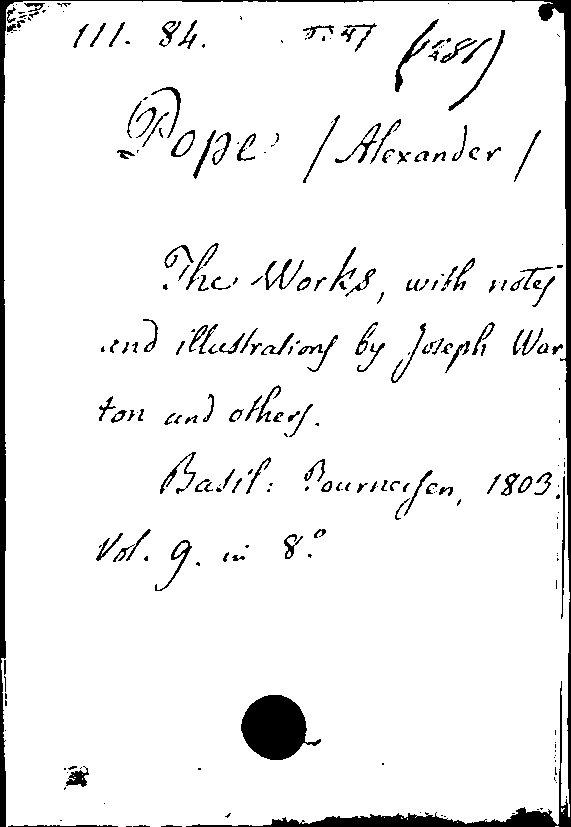 111. 84.
Pope / Alexander /
The Works, with notes
and illustrations by Joseph War-
ton and others.
Basil: Tourneisen, 1803.
Vol. 9. in 8.º